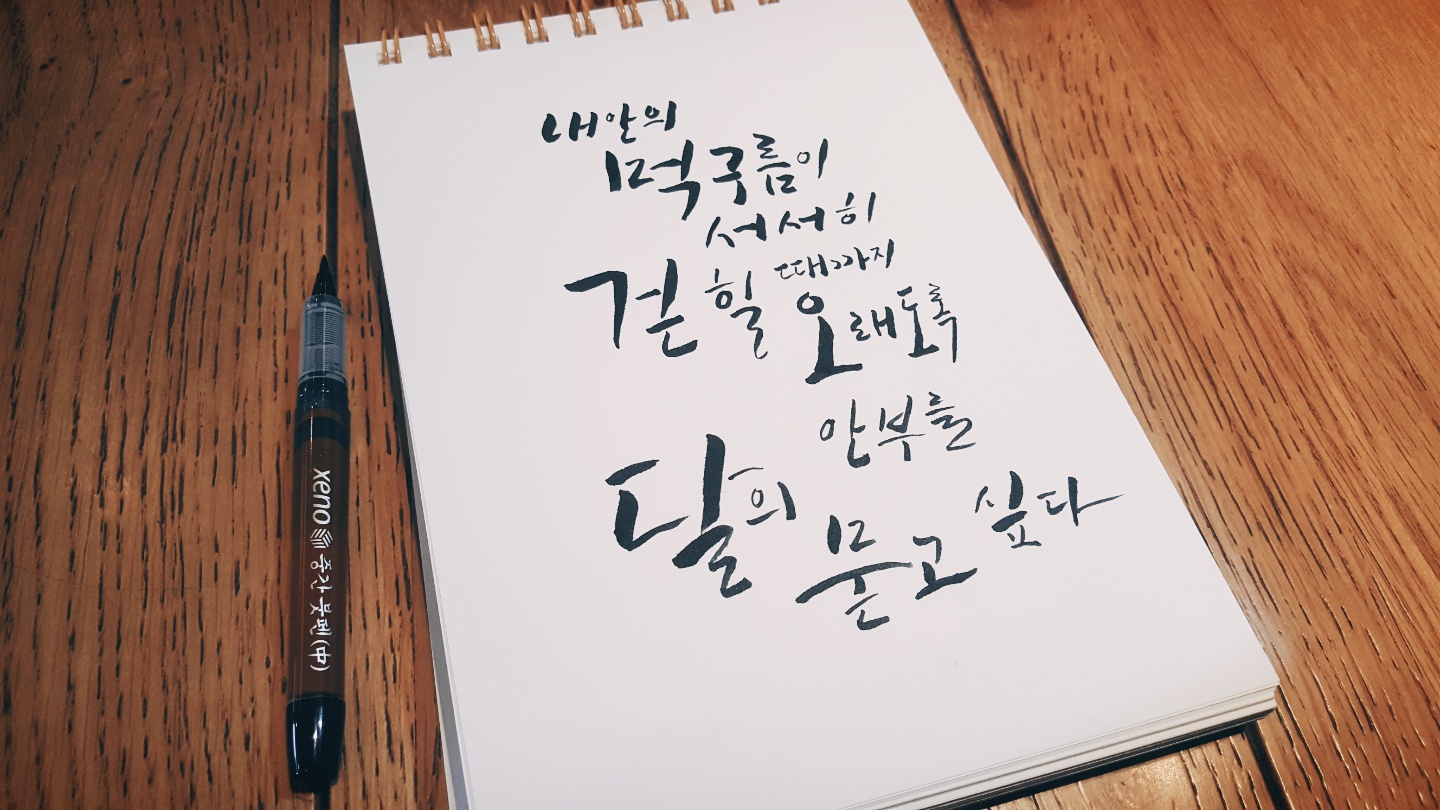 내안의
먹구름이
서서히
걷힐 때까지
오래도록
달의 안부를
묻고 싶다
xeno 중간붓펜(中)